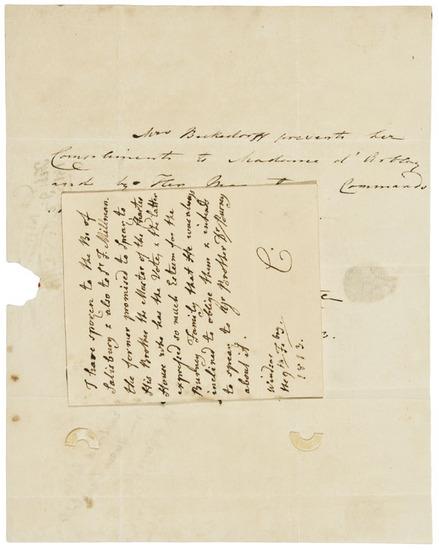 Mrs Beckedorff presents her
Compliments to Madame d'Arblay
and by Her Commands
I have spoken to the Bp of
Salisbury & also to Sr F. Millman.
the former promised to speak to
His Brother the Master of the Charter
House who has the Votes, & the latter
expressed so much Esteem for the
Burney Family that He was always
inclined to oblige them & intends
to speak to Yr Brother Dr Burney
about it.
C.
Windsor
1813.